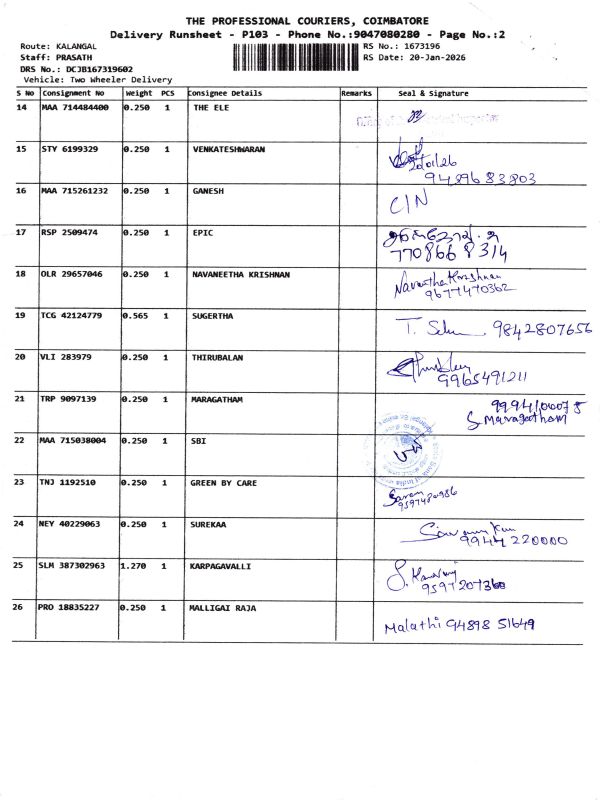 THE PROFESSIONAL COURIERS, COIMBATORE
Delivery Runsheet - P103 - Phone No.:9047080280 - Page No.:2
Route: KALANGAL RS No.: 1673196
Staff: PRASATH RS Date: 20-Jan-2026
DRS No.: DCJB167319602
Vehicle: Two Wheeler Delivery
S No Consignment No Weight PCS Consignee Details Remarks Seal & Signature
14 MAA 714484400 0.250 1 THE ELE
15 STY 6199329 0.250 1 VENKATESHWARAN
20/01/26
9489683803
16 MAA 715261232 0.250 1 GANESH
C/N
17 RSP 2509474 0.250 1 EPIC
7708668314
18 OLR 29657046 0.250 1 NAVANEETHA KRISHNAN
Navaneetha Krishnan
9677470362
19 TCG 42124779 0.565 1 SUGERTHA
T. 9842807656
20 VLI 283979 0.250 1 THIRUBALAN
9965491211
21 TRP 9097139 0.250 1 MARAGATHAM
9994100075
S Maragatham
22 MAA 715038004 0.250 1 SBI
23 TNJ 1192510 0.250 1 GREEN BY CARE
9597480986
24 NEY 40229063 0.250 1 SUREKAA
9944220000
25 SLM 387302963 1.270 1 KARPAGAVALLI
9597207360
26 PRO 18835227 0.250 1 MALLIGAI RAJA
Malathi 94898 51649